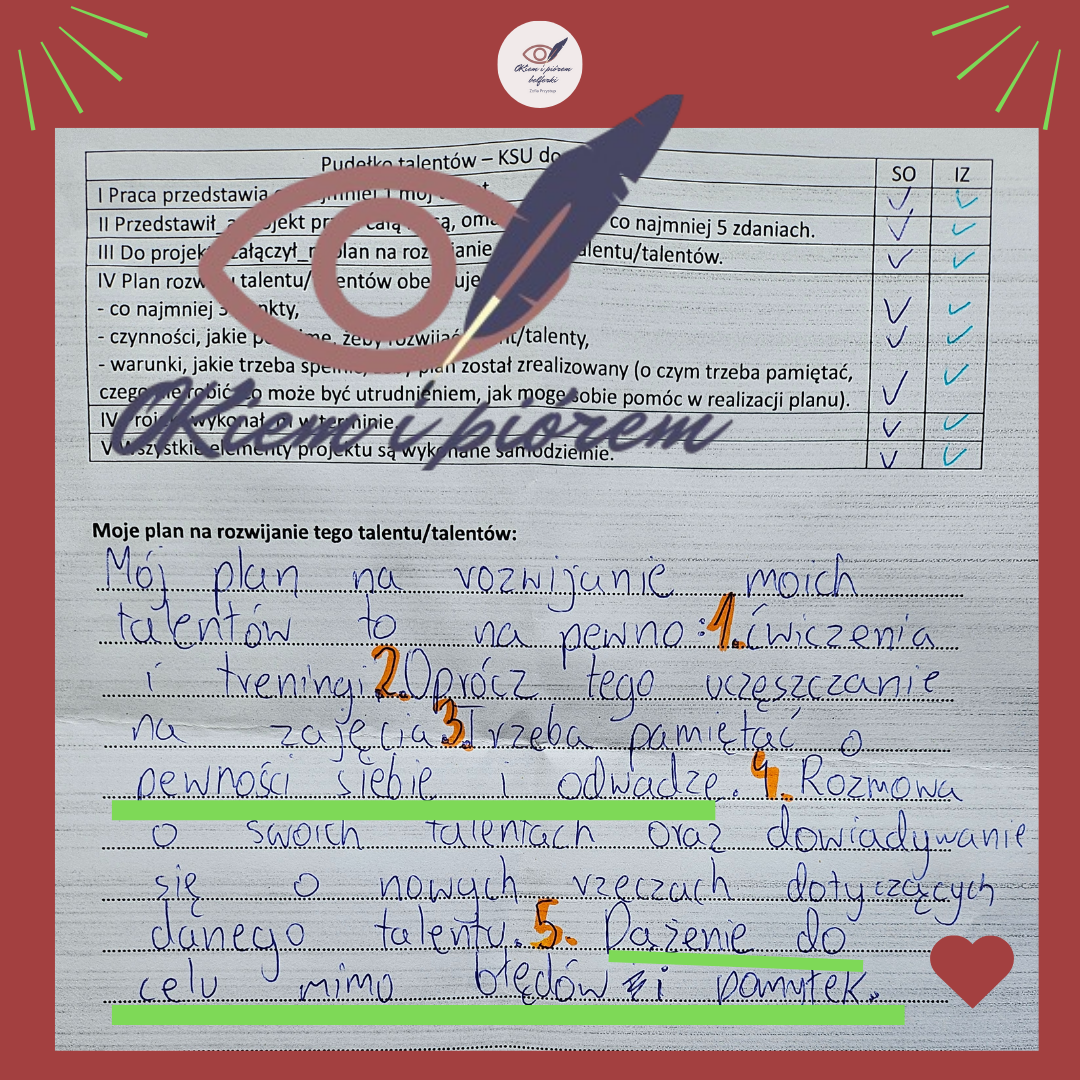 OKiem i piórem
belferki
Zofia Przyrowa
Pudełko talentów – KSU do
SO IZ
I Praca przedstawia mniej 1 mój
II Przedstawił_a co najmniej 5 zdaniach.
III Do projek załączył_ plan na roz talentu/talentów.
IV Plan rozw talentu/
- co najmniej 3 punkty,
- czynności, jakie żeby rozwijać talent/talenty,
- warunki, jakie trzeba został zrealizowany (o czym trzeba pamiętać,
czego nie robić, co może być utrudnieniem, jak mogę sobie pomóc w realizacji planu).
IV wykonał terminie.
V Wszystkie elementy projektu są wykonane samodzielnie.
OKiem i piórem
Moje plan na rozwijanie tego talentu/talentów:
Mój plan na rozwijanie moich
talentów to na pewno: 1. Ćwiczenia
i treningi. 2. Oprócz tego uczęszczanie
na zajęcia. 3. Trzeba pamiętać o
pewności siebie i odwadze. 4. Rozmowa
o swoich talentach oraz dowiadywanie
się o nowych rzeczach dotyczących
danego talentu. 5. Dążenie do
celu mimo błędów i pomyłek.